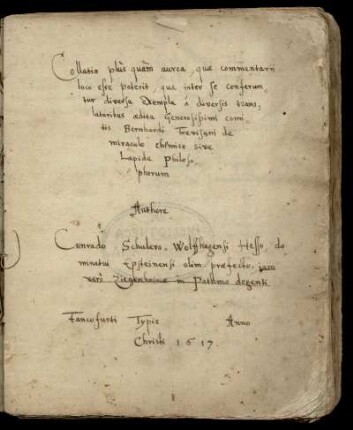 Collatio plus quam aurea, quæ commentarii
loco esse poterit, qua inter se conferun,
tur diversa exempla à diversis trans,
latoribus ædita Generosissimi comi,
tis Bernhardi Trevisani de
miraculo chemico sive
Lapide Philoso,
phorum
Authore
Conrado Schulero, Welfhagensi Hesso, do
minatui Epsteinensi olim præfecto, jam
vero Ziegenhainæ in Pathmo degenti
Francofurti Typis Anno
Christi 1617